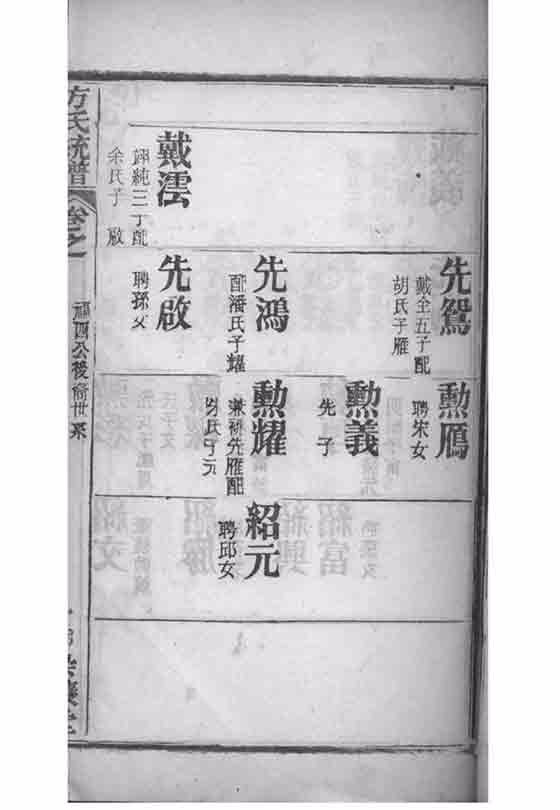 先鴛
戴全五子配
胡氏子雁
先鴻
配潘氏子耀
先啟
聘孫女
戴澐
純三丁配
余氏子 啟
勲鴈
聘宋女
勲義
先 子
勲耀
兼祧先雁配
氏子元
紹元
聘邱女
方氏統譜
卷之一
福四公後裔世系